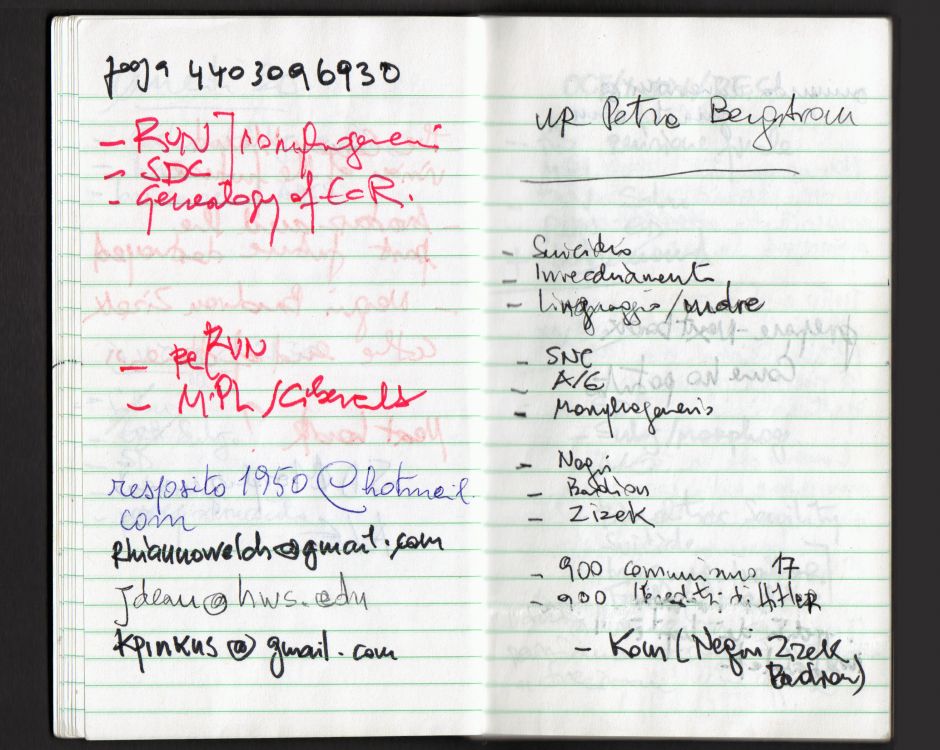 Jogja 4403096930
- RUN
- SDC
- Genealogy of EcR.
- RUN
- MPL / Ciberals
resposito 1950@hotmail.
com
rhiannowelch@gmail.com
jdean@hws.edu
kpinkus@gmail.com
UR Petra Bergstrom
- Suicidio
- Invecchiamento
- Linguaggio/madre
- SNC
- A/G
- Morphogenesis
- Negri
- Badiou
- Zizek
- 900 comunismo 17
- 900 l'eredità di HitlER
- Kom (Negri Zizek
Badiou)